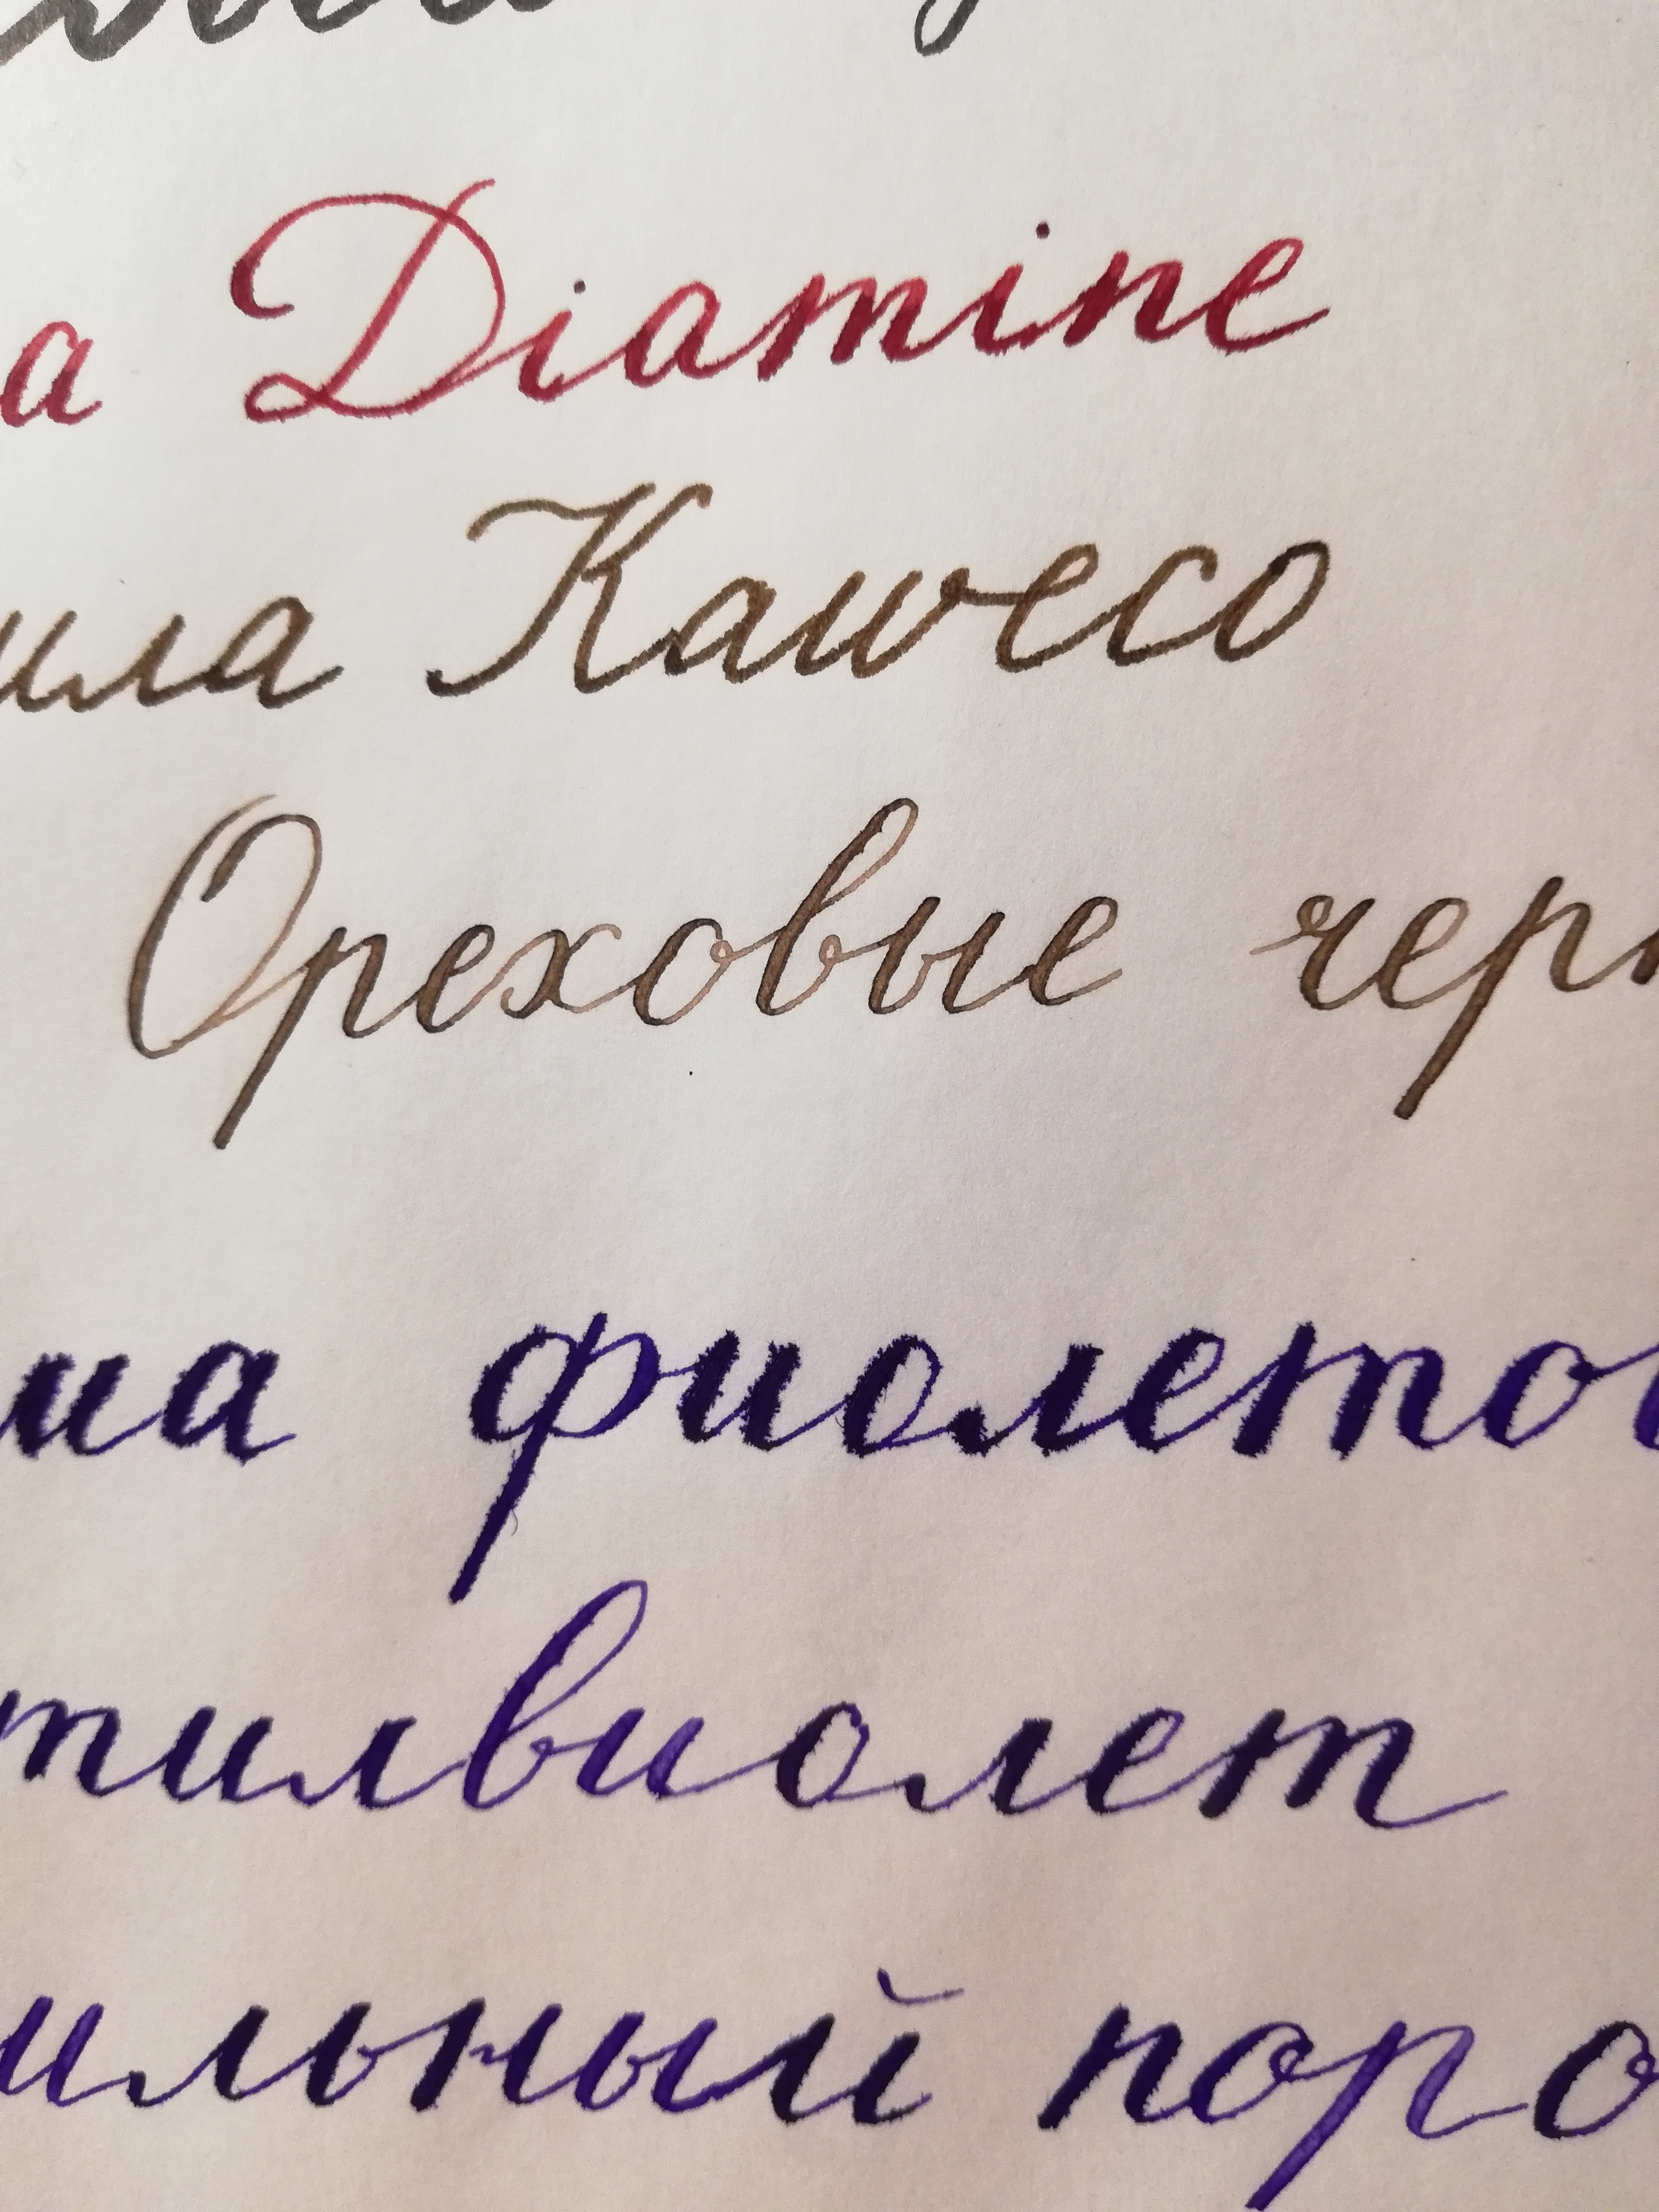 а Diamine
ила Kaweco
Ореховые черн
ила фиолетов
тилвиолет
ильный поро